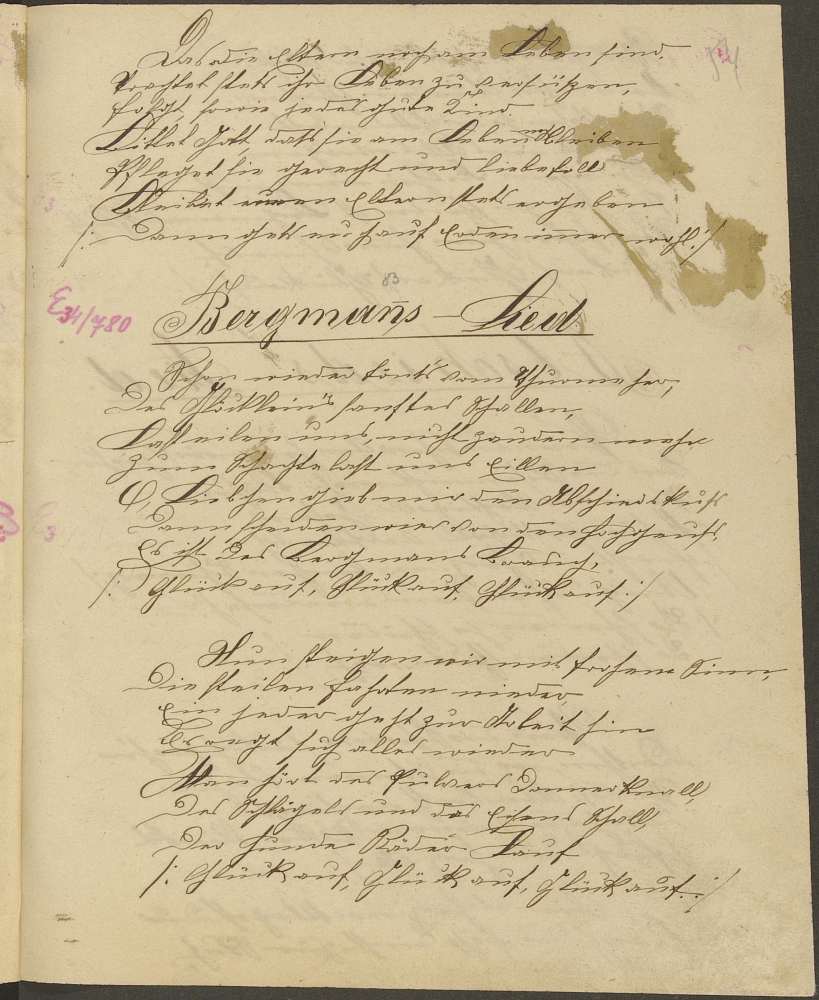 Das die Eltern noch am Leben sind.
Trachtet stets ihr Leben zu versüßen,
folgt, sowie jedes gute Kind.
Bittet Gott daß sie am Leben bleiben
Pfleget sie gerecht und liebefoll
Bleibet euren Eltern stets ergeben
/: Dann gehts euch auf Erden immer wohl :/
83
E34/780
Bergmans-Lied
Schon wieder tönt's vom Thurme her,
Des Glöckleins sanftes Schallen,
Laßt eilen uns, nicht zaudern mehr
Zum Schachte laßt uns Eillen
O, Liebchen gieb mir den Abschiedskuß
Dann scheiden wier von den Hochgenuß,
Es ist Des Bergmans Brauch,
/: Glück auf, Glück auf, Glück auf :/
Nun steigen wir mit frohem Sinn,
Die steilen Fahrten nieder,
Ein jeder geht zur Arbeit hin
Es regt sich alles wieder
Man hört des Pulvers Donnerknall,
Des Schlägels und das Eisens Schall,
Der Hunde Räder Lauf
/: Glück auf, Glück auf, Glück auf. :/